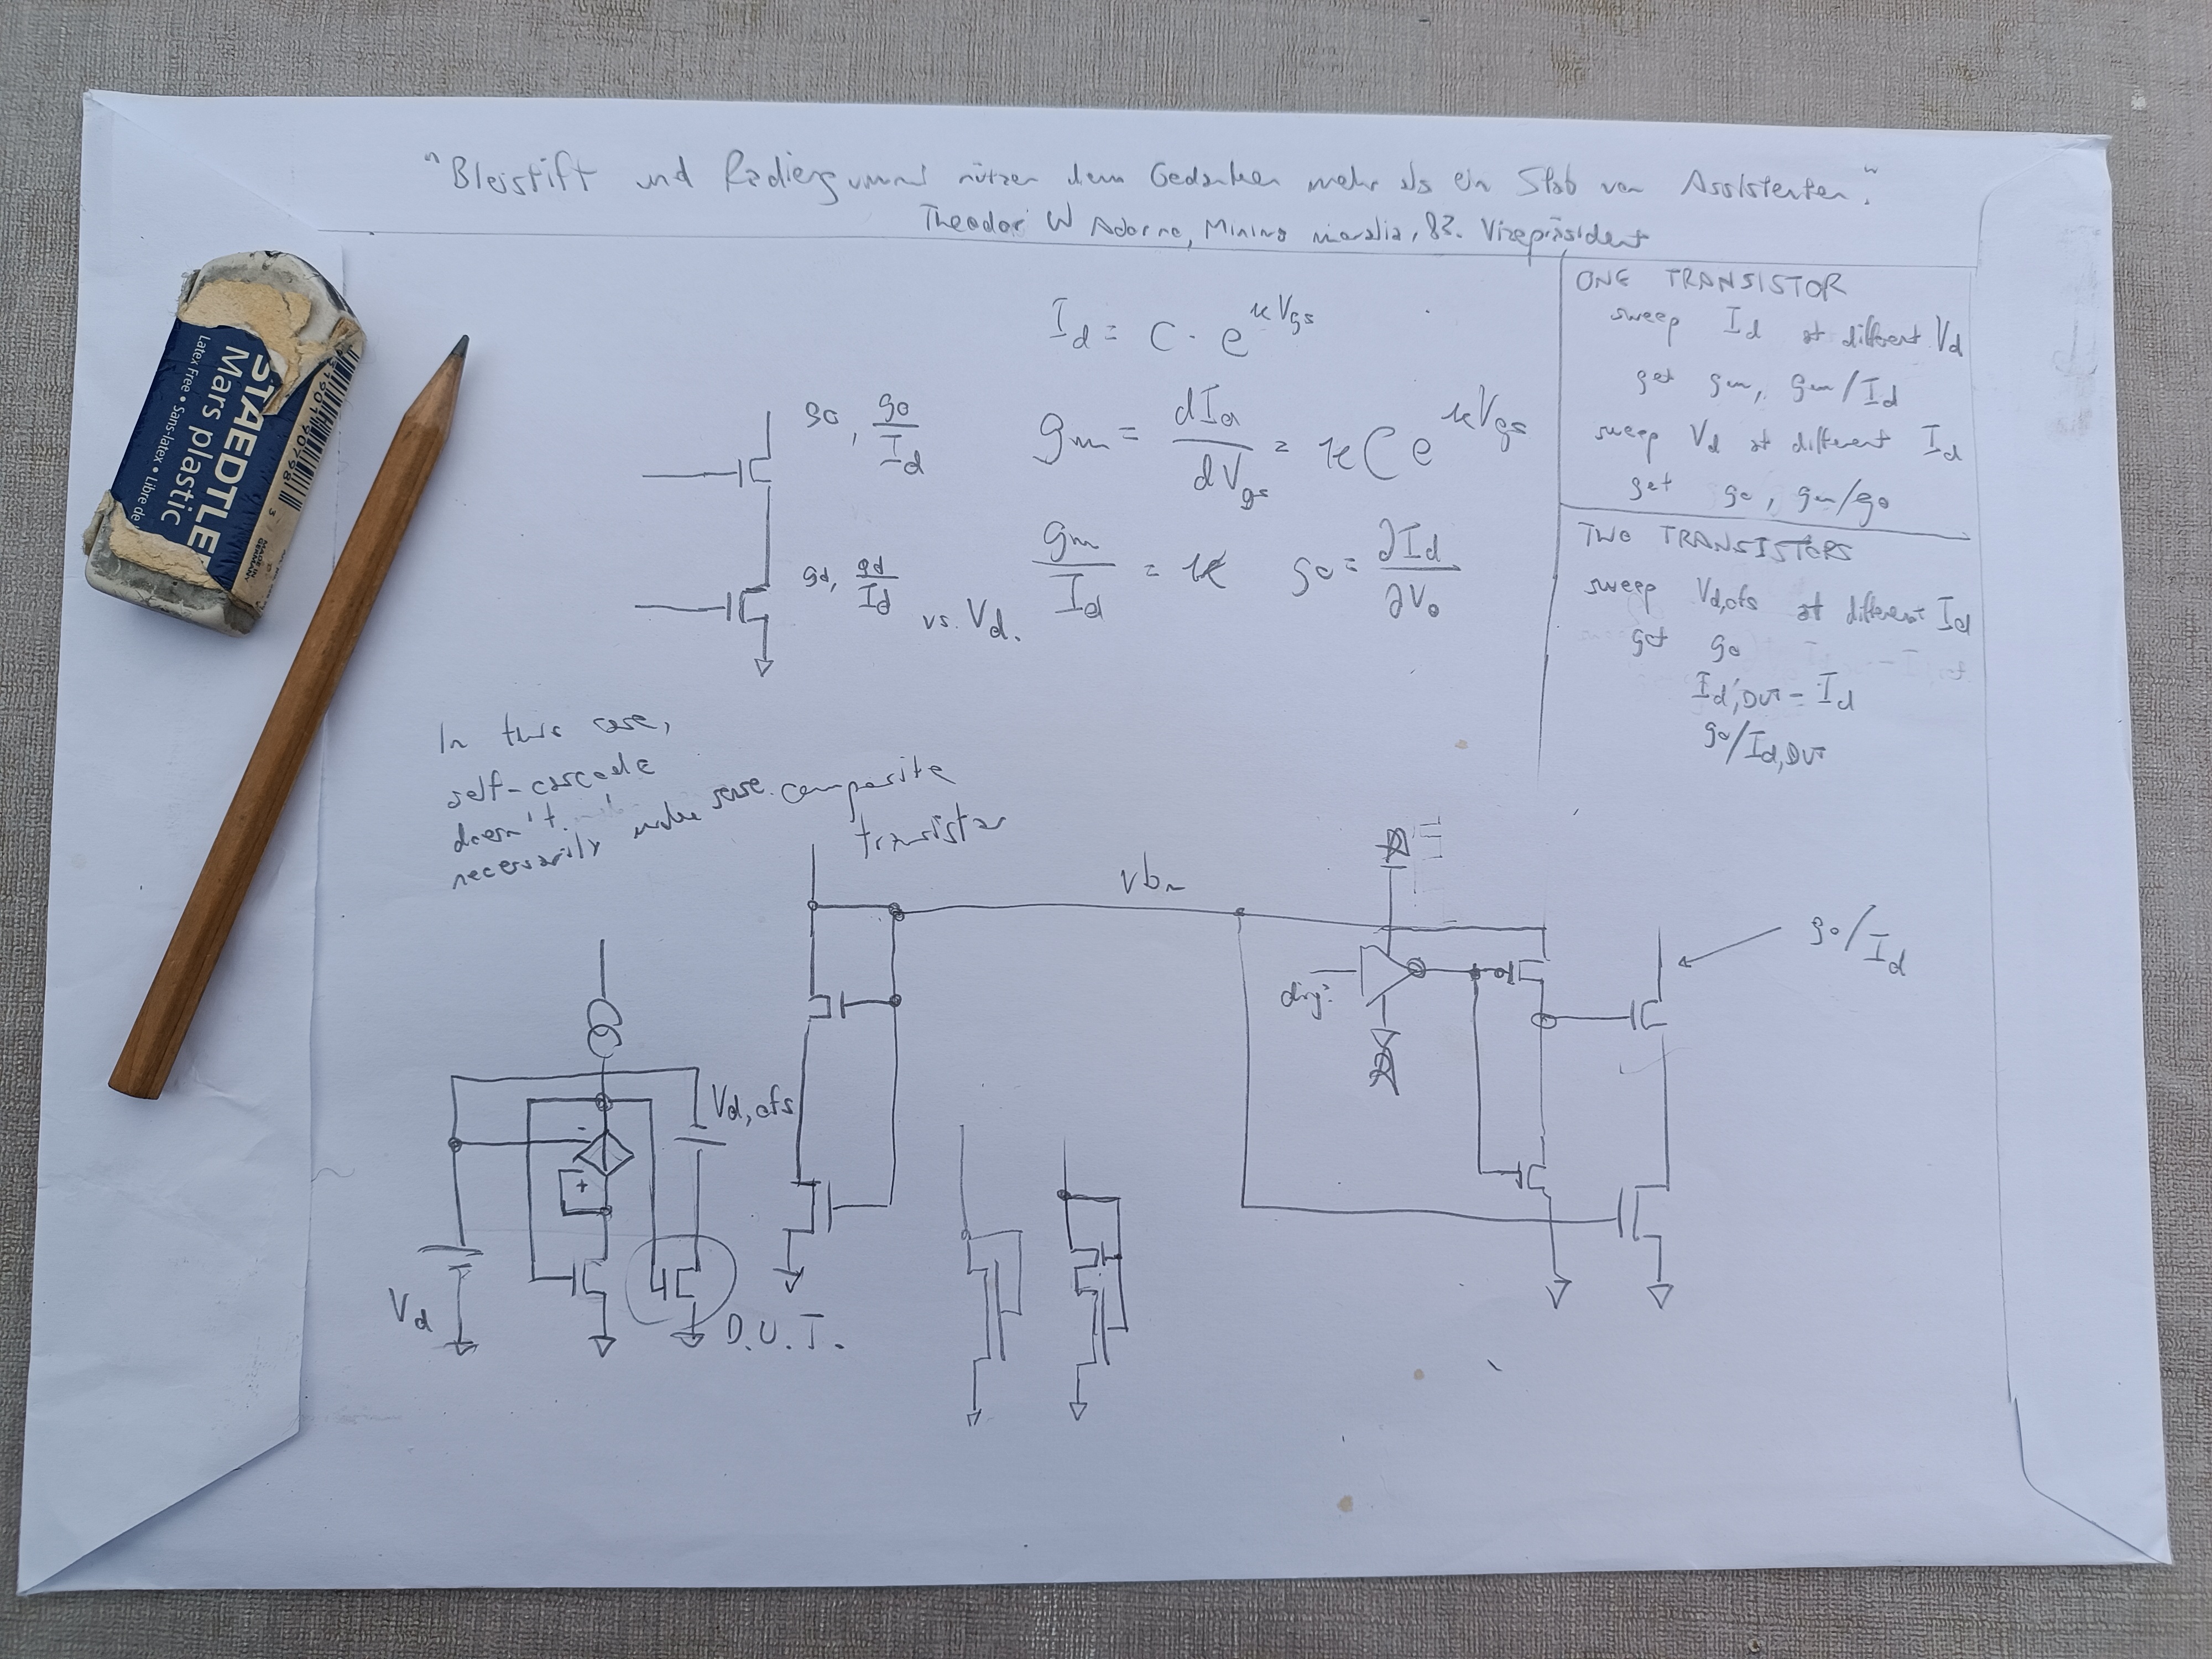 "Bleistift und Radiergummi nützen dem Gedanken mehr als ein Stab von Assistenten."
Theodor W Adorno, Minima moralia, 83. Vizepräsident
STAEDTLER
Mars plastic
Latex Free • Sans-latex • Libre de
MADE IN
GERMANY
I_d = C · e^{κV_gs}
g_m = dI_d/dV_gs = κCe^{κV_gs}
g_m/I_d = κ
g_o = ∂I_d/∂V_o
g_o, g_o/I_d
g_d, g_d/I_d vs. V_d.
ONE TRANSISTOR
sweep I_d at different V_d
get g_m, g_m/I_d
sweep V_d at different I_d
get g_o, g_m/g_o
TWO TRANSISTORS
sweep V_d,ofs at different I_d
get g_o
I_d,DUT = I_d
g_o/I_d,DUT
In this case,
self-cascode
doesn't
necessarily make sense.
composite
transistor
vbn
g_o/I_d
V_d,ofs
-
+
V_d
D.U.T.